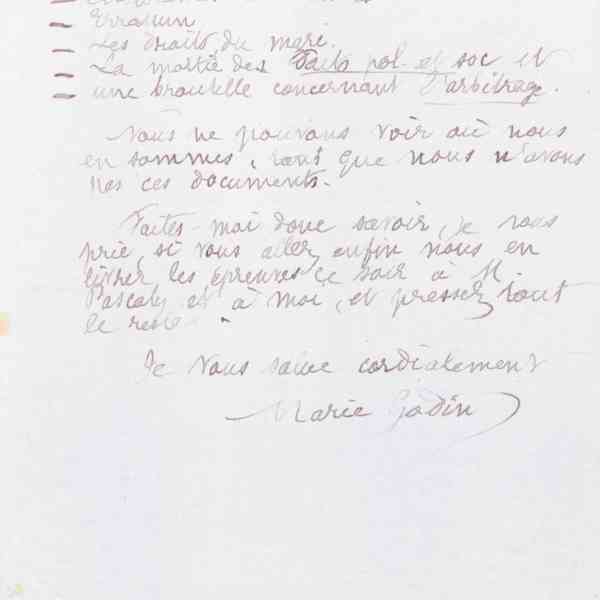 – Erratum
– Les droits du mari.
– La moitié des Faits pol. et soc et
– une broutille concernant L'arbitrage.
Nous ne pouvons voir où nous
en sommes, tant que nous n'avons
pas ces documents.
Faites-moi donc savoir, je vous
prie, si vous allez enfin nous en
livrer les épreuves ce soir à M.
Pascaly et à moi, et pressez tout
le reste.
Je vous salue cordialement
Marie Godin